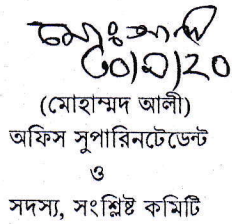 ৩০/৯/২০
(মোহাম্মদ আলী)
অফিস সুপারিনটেডেন্ট
ও
সদস্য, সংশ্লিষ্ট কমিটি